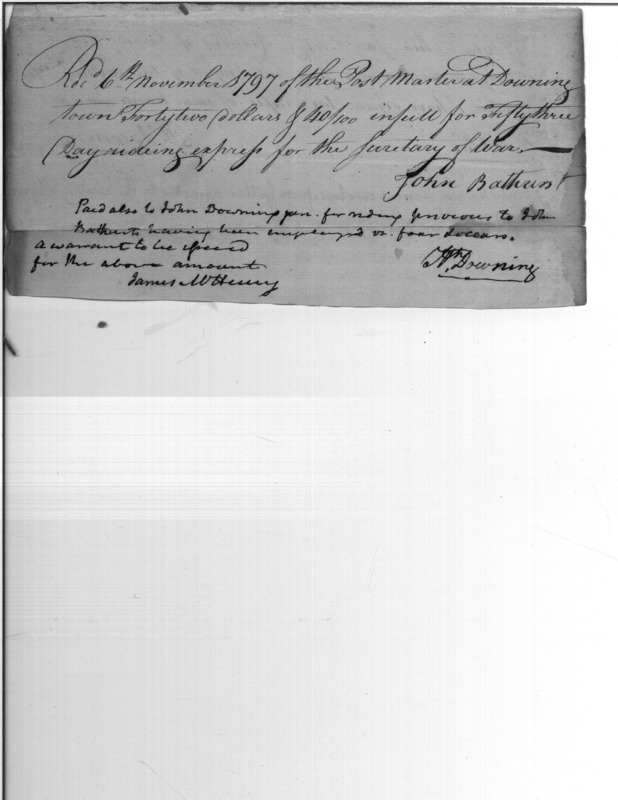 Rec.d 6th November 1797 of the Post Master at Downing
town Forty two Dollars & 40/100 in full for Fifty three
Days rideing express for the Secretary of War. —
John Bathurst
Paid also to John Downing jun. for riding previous to John
Bathurst having been employed viz. four dollars.
a warrant to be issued
for the above amount
James McHenry
Downing